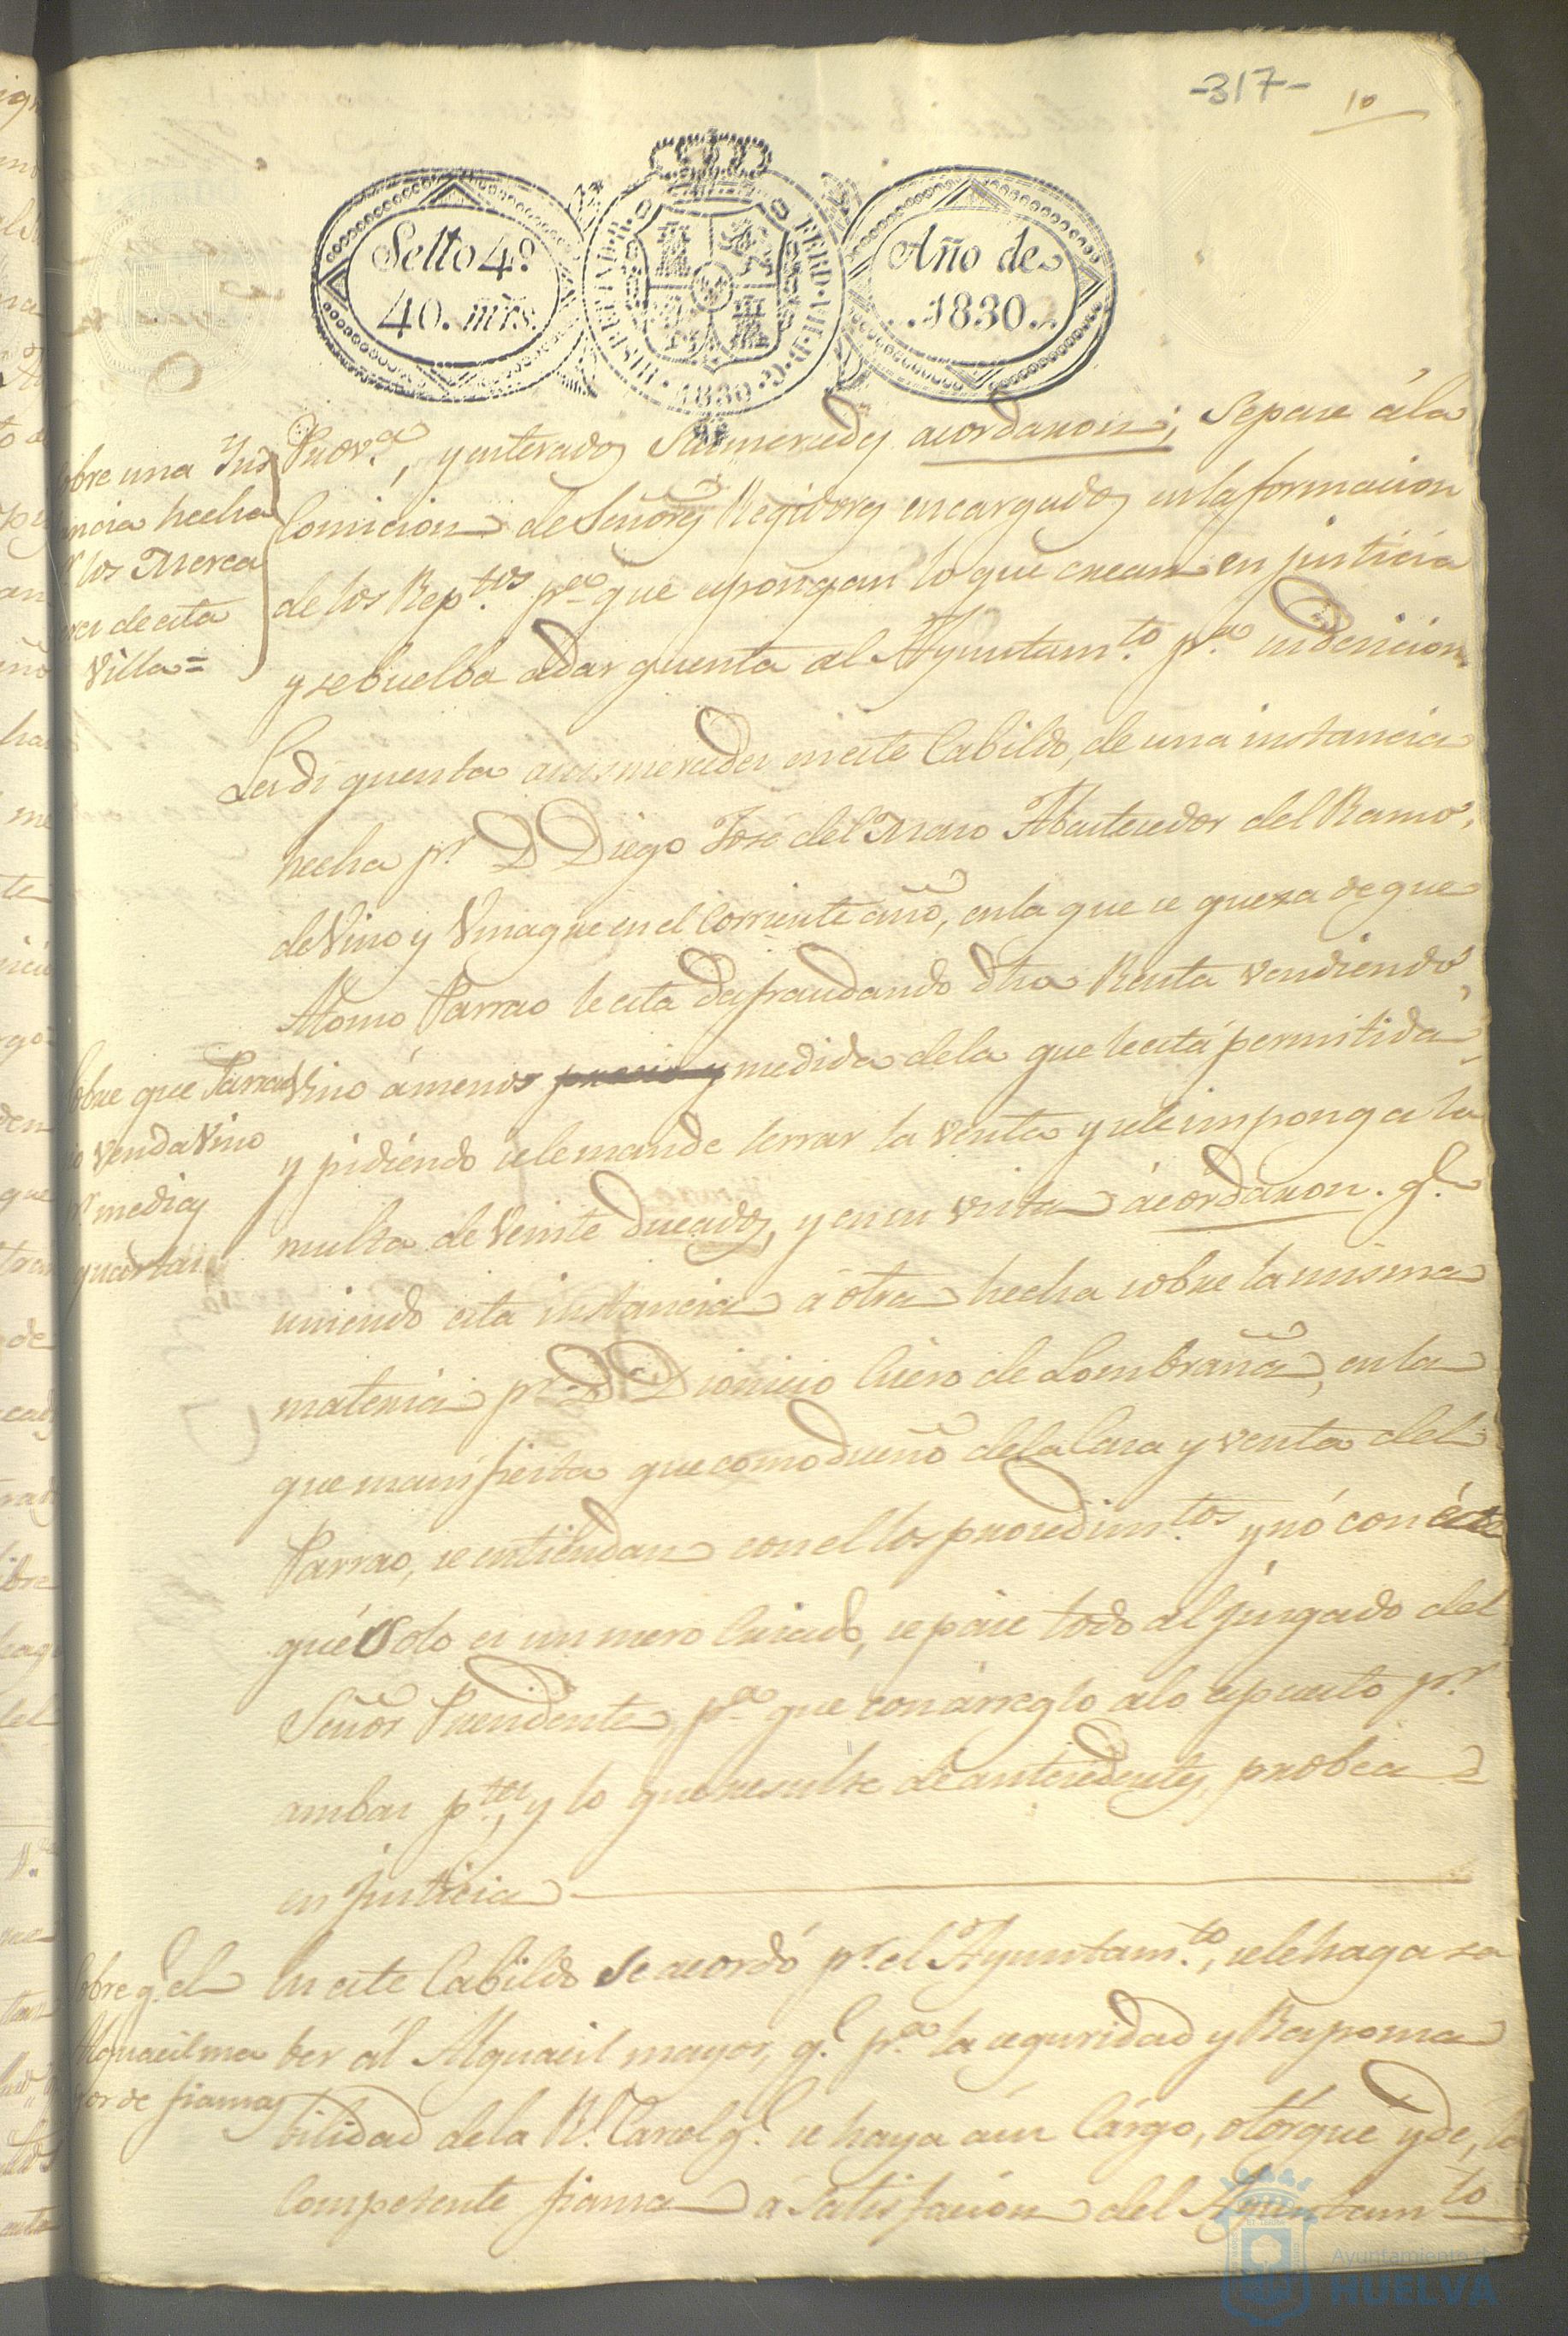 -317-
10
Sello 4º
40. mrs.
HISPANIAR. R.
FERD. VII. D. G.
1830
Año de
1830.
Sobre una Ins
tancia hecha
pr los Merca
deres de esta
Villa=
Prov.a, y enterados Susmercedes acordaron; Sepase ála
Comicion de Señores Regidores encargados en la formacion
de los Rep.tos pa que espongan lo que crean en justicia
y se buelba adar quenta al Ayuntam.to pa su decicion
Ledi quenta asusmercedes en este Cabildo, de una instancia
hecha pr D Diego José del Mazo Abastecedor del Ramo
de Vino y Vinagre en el Corriente año, en la que se quexa de que
Alonso Parrao le esta defraudando dha Renta vendiendo
Sobre que Parrao
no venda Vino
pr medias
quartas
Vino ámenos precio y medida dela que le está permitida
y pidiendo sele mande serrar la venta y sele imponga la
multa de Veinte Ducados, y en su vista ácordaron. q.e
uniendo esta instancia a otra hecha sobre la misma
materia pr D Dionicio Cuero de Lombraña, en la
que manifiesta que como dueño dela Casa y venta del
Parrao, se entiendan con el los procedim.tos y nó con éste
que Solo es un mero Criado, se pase todo al Juzgado del
Señor Precidente, pa que con árreglo alo espuesto pr
ambas p.tes, y lo que resulte de antecedentes, probéa
en Justicia
Sobre q.e el
Alguacil ma
yor de fiansas
En este Cabildo Se acordó pr el Ayuntam.to, sele haga sa
ber ál Alguacil mayor, q.e pa la seguridad y Responsa
bilidad dela R.l Carcel q.e se haya á su Cárgo, otórgue y dé, la
Competente fiansa a Satisfacion del Ayuntam.to
Ayuntamiento de
HUELVA